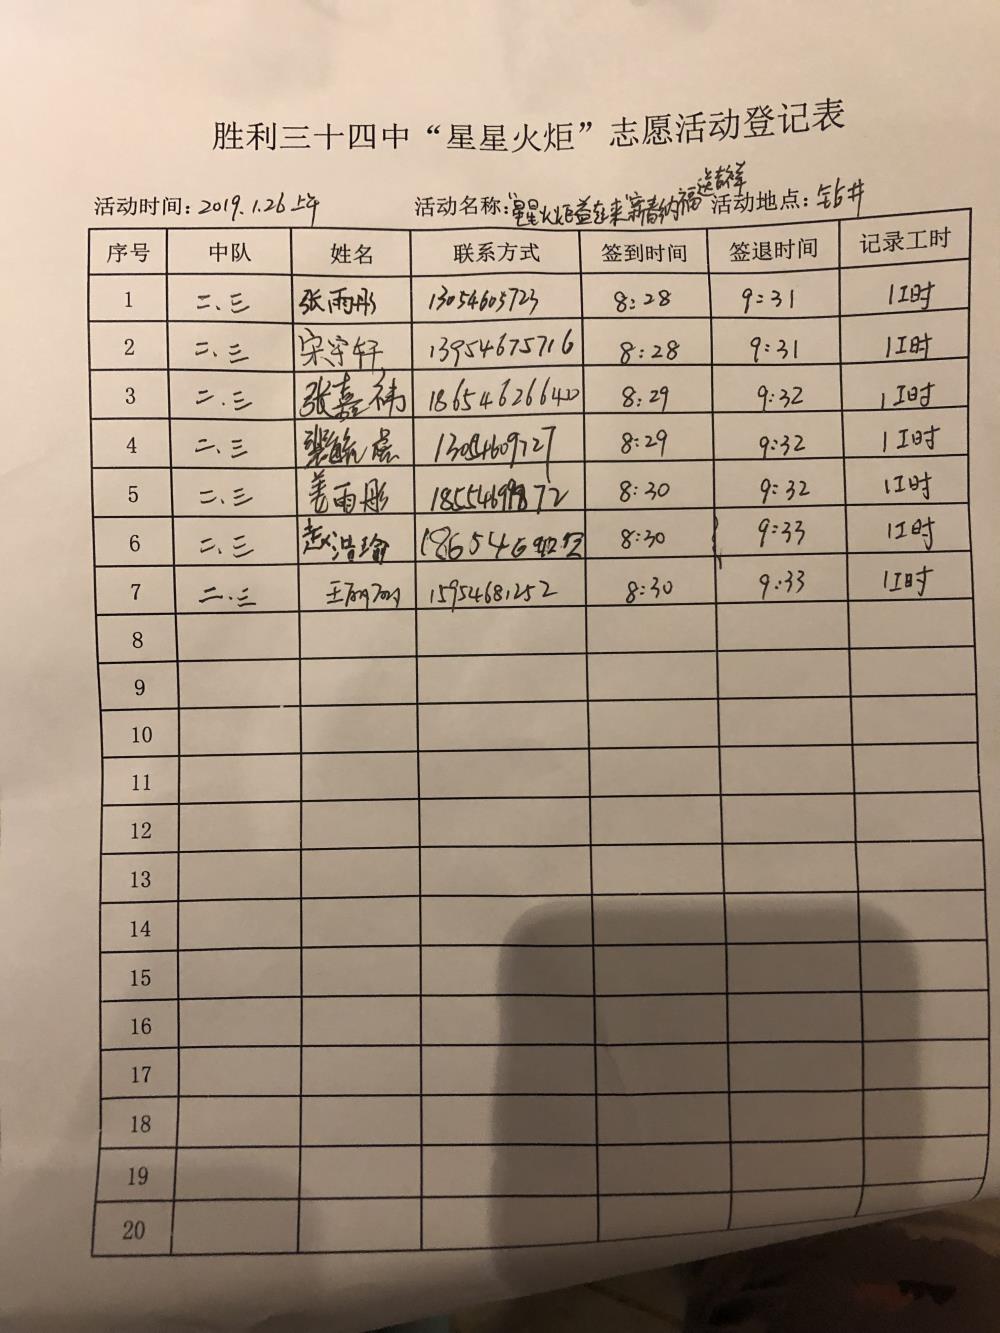 胜利三十四中“星星火炬”志愿活动登记表
活动时间：2019.1.26上午 活动名称：“星星火炬益在来”新春纳福送吉祥 活动地点：钻井
序号 中队 姓名 联系方式 签到时间 签退时间 记录工时
1 二、三 张雨彤 13054603723 8:28 9:31 1工时
2 二、三 宋宇轩 13954675716 8:28 9:31 1工时
3 二、三 张嘉祎 18654626640 8:29 9:32 1工时
4 二、三 13054609727 8:29 9:32 1工时
5 二、三 姜雨彤 8:30 9:32 1工时
6 二、三 赵浩瑜 8:30 9:33 1工时
7 二、三 15954681252 8:30 9:33 1工时
8
9
10
11
12
13
14
15
16
17
18
19
20